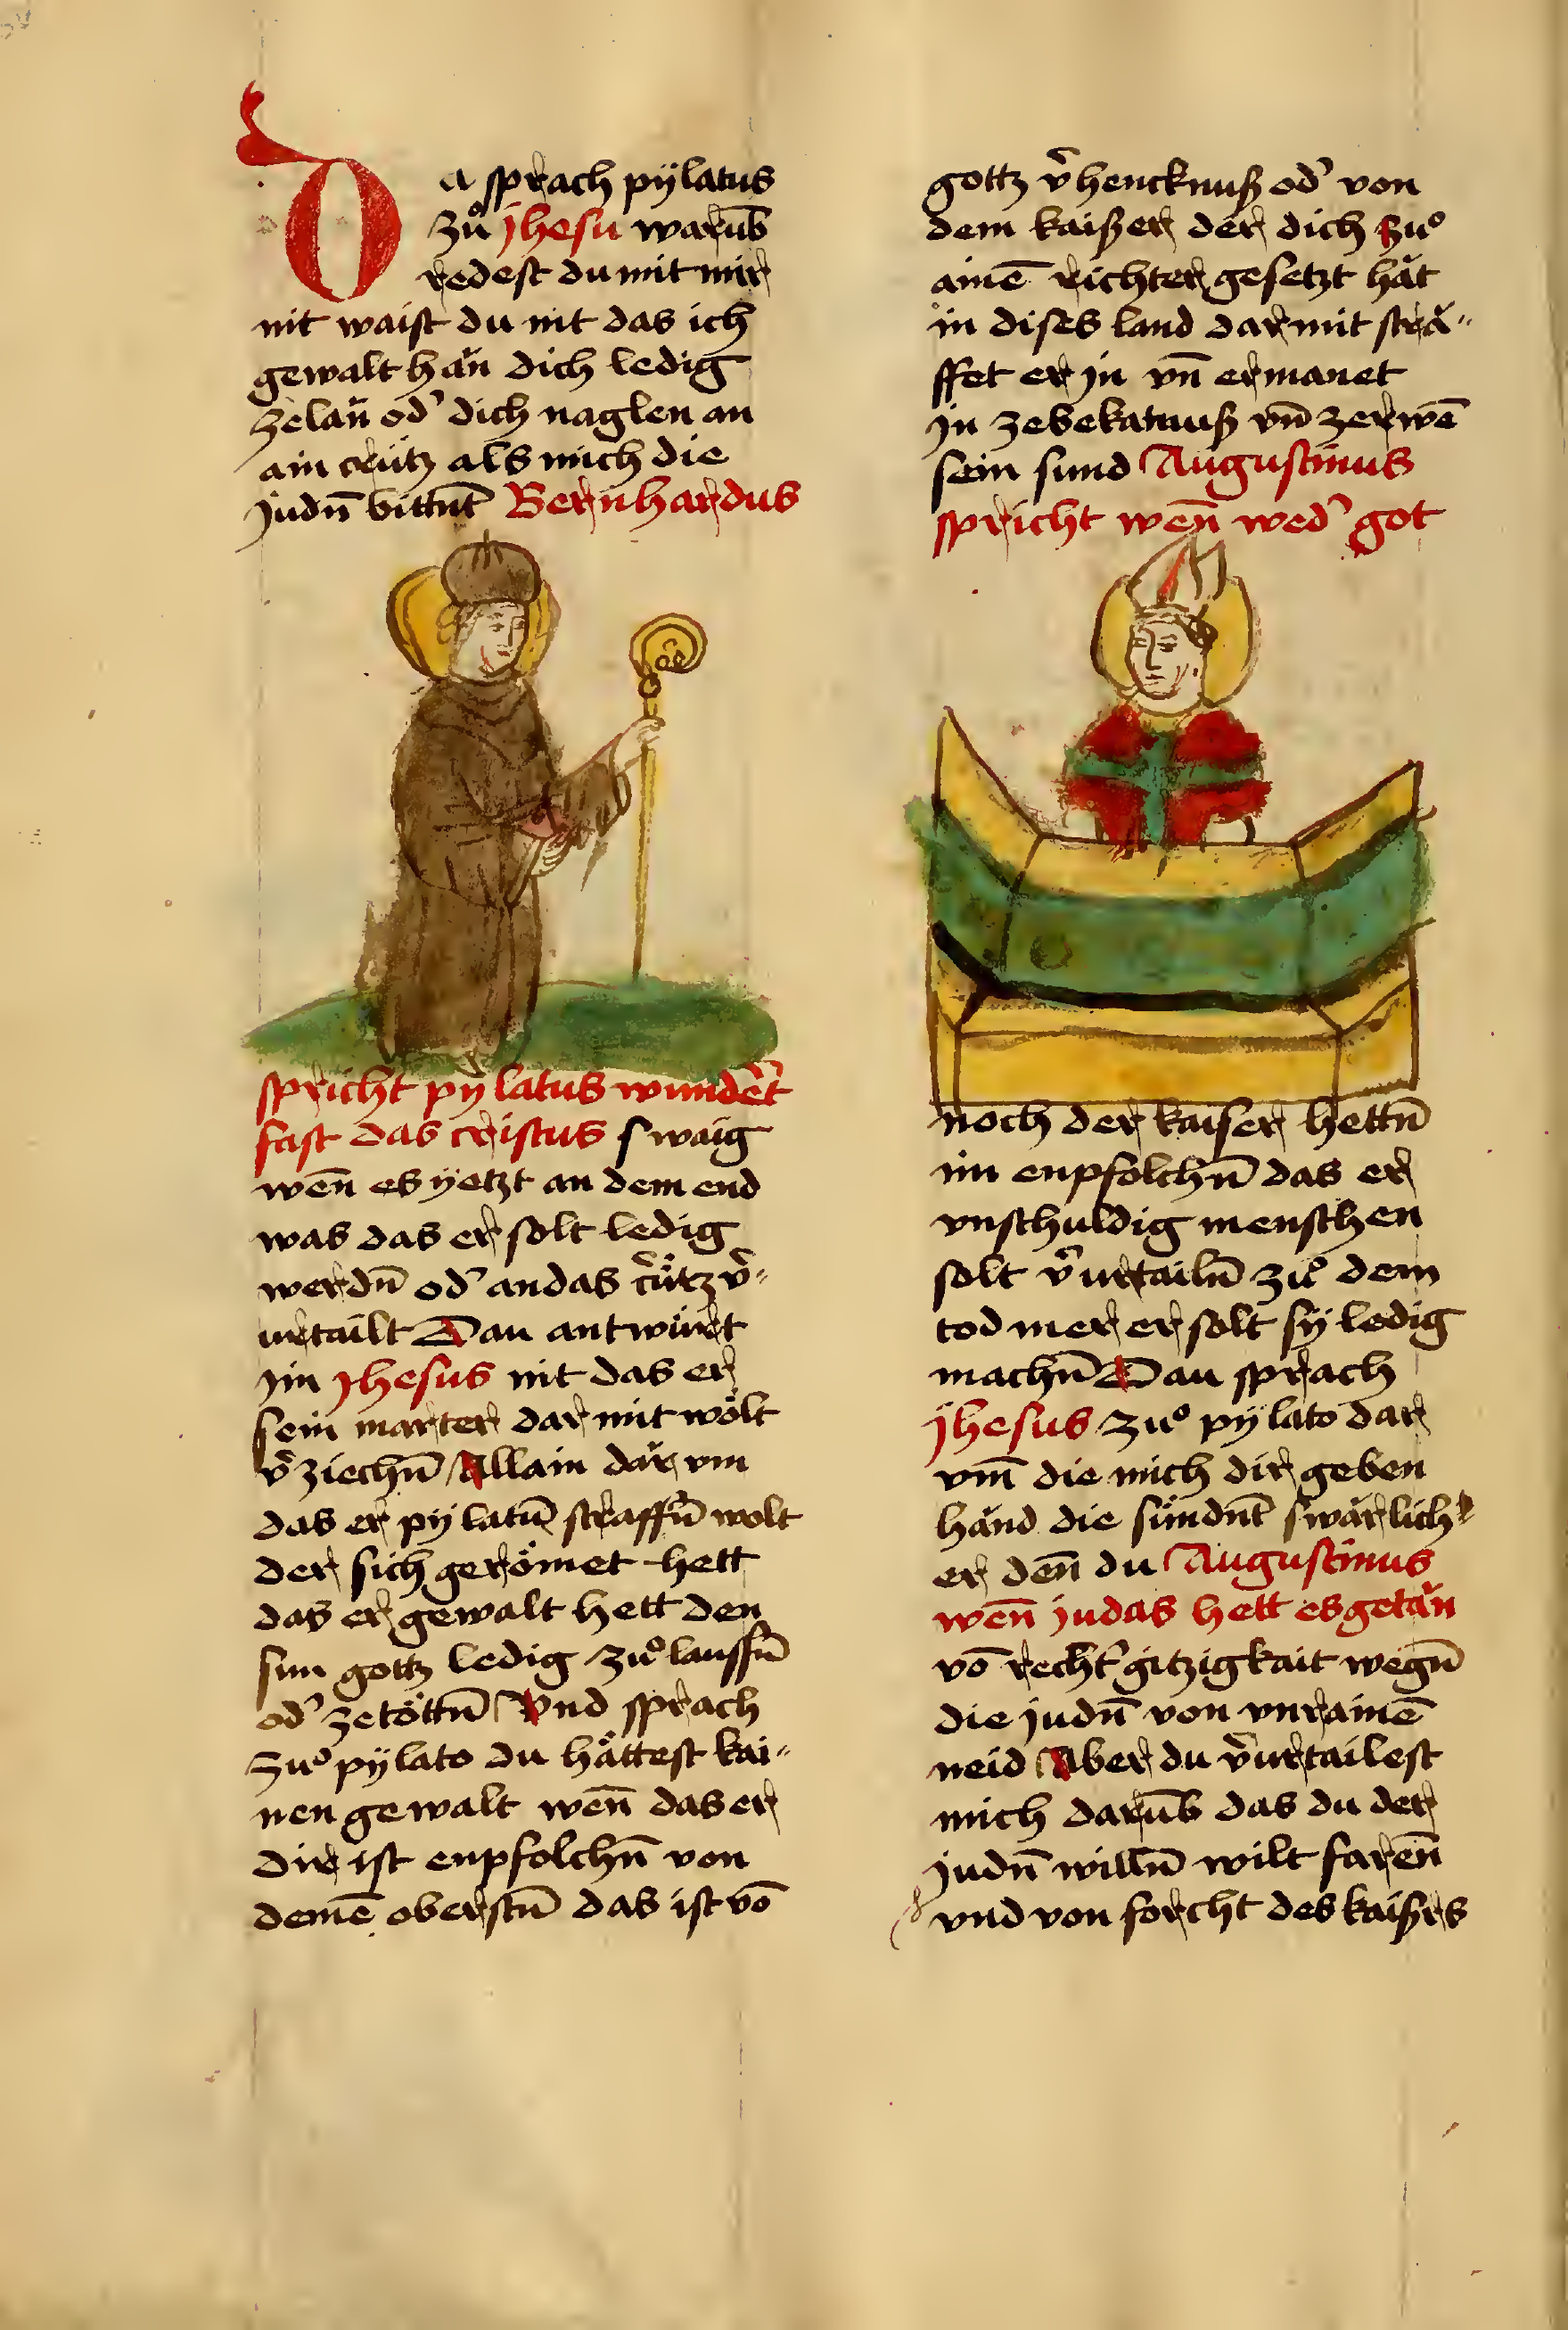 Da sprach pÿlatus
zuͦ jhesu warūb
redest du mit mir
nit waist du nit das ich
gewalt hän dich ledig
zelän od' dich naglen an
ain crütz als mich die
judn̄ bittnt̄ Bernhardus
spricht pÿlatus wunder̄t
fast das cristus swaig
wen̄ es yetzt an dem end
was das er solt ledig
werdn̄ od' an das cr̄ütz v̄-
urtailt Dau antwürt
im Jhesus nit das er
sein marter dar mit wölt
v̄ziechn̄ Allain där vm
das er pÿlatū straffn̄ wolt
der sich gerömet hett
das er gewalt hett den
sun gottz ledig zuͦ laussn̄
od' zetöttn̄ Vnd sprach
zuͦ pÿlato du hättest kai-
nen gewalt wen̄ das er
dir ist enpfolchn̄ von
demē oberstn̄ das ist vō
gottz v̄hencknuß od' von
dem kaißer der dich zuͦ
ainē richter gesetzt hät
in dises land dar mit strä-
ffet er jn vn̄ ermanet
jn zebekantnuß vn̄ zerwē
sein sund Augustinus
spricht wen̄ wed' got
noch der kaiser hettn̄
im enpfolchn̄ das er
vnschuldig menschen
solt v̄urtailn̄ zuͦ dem
tod mer er solt sÿ ledig
machn̄ Dau sprach
jhesus zuͦ pÿlato dar
vm̄ die mich dir geben
händ die sündnt̄ swärlich-
er den̄ du Augustinus
wen̄ judas hett es getän
vō recht' gitzigkait wegn̄
die judn̄ von vnrainē
neid Aber du v̄urtailest
mich darūb das du der
judn̄ willn̄ wilt faren̄
vnd von forcht des kaißrs